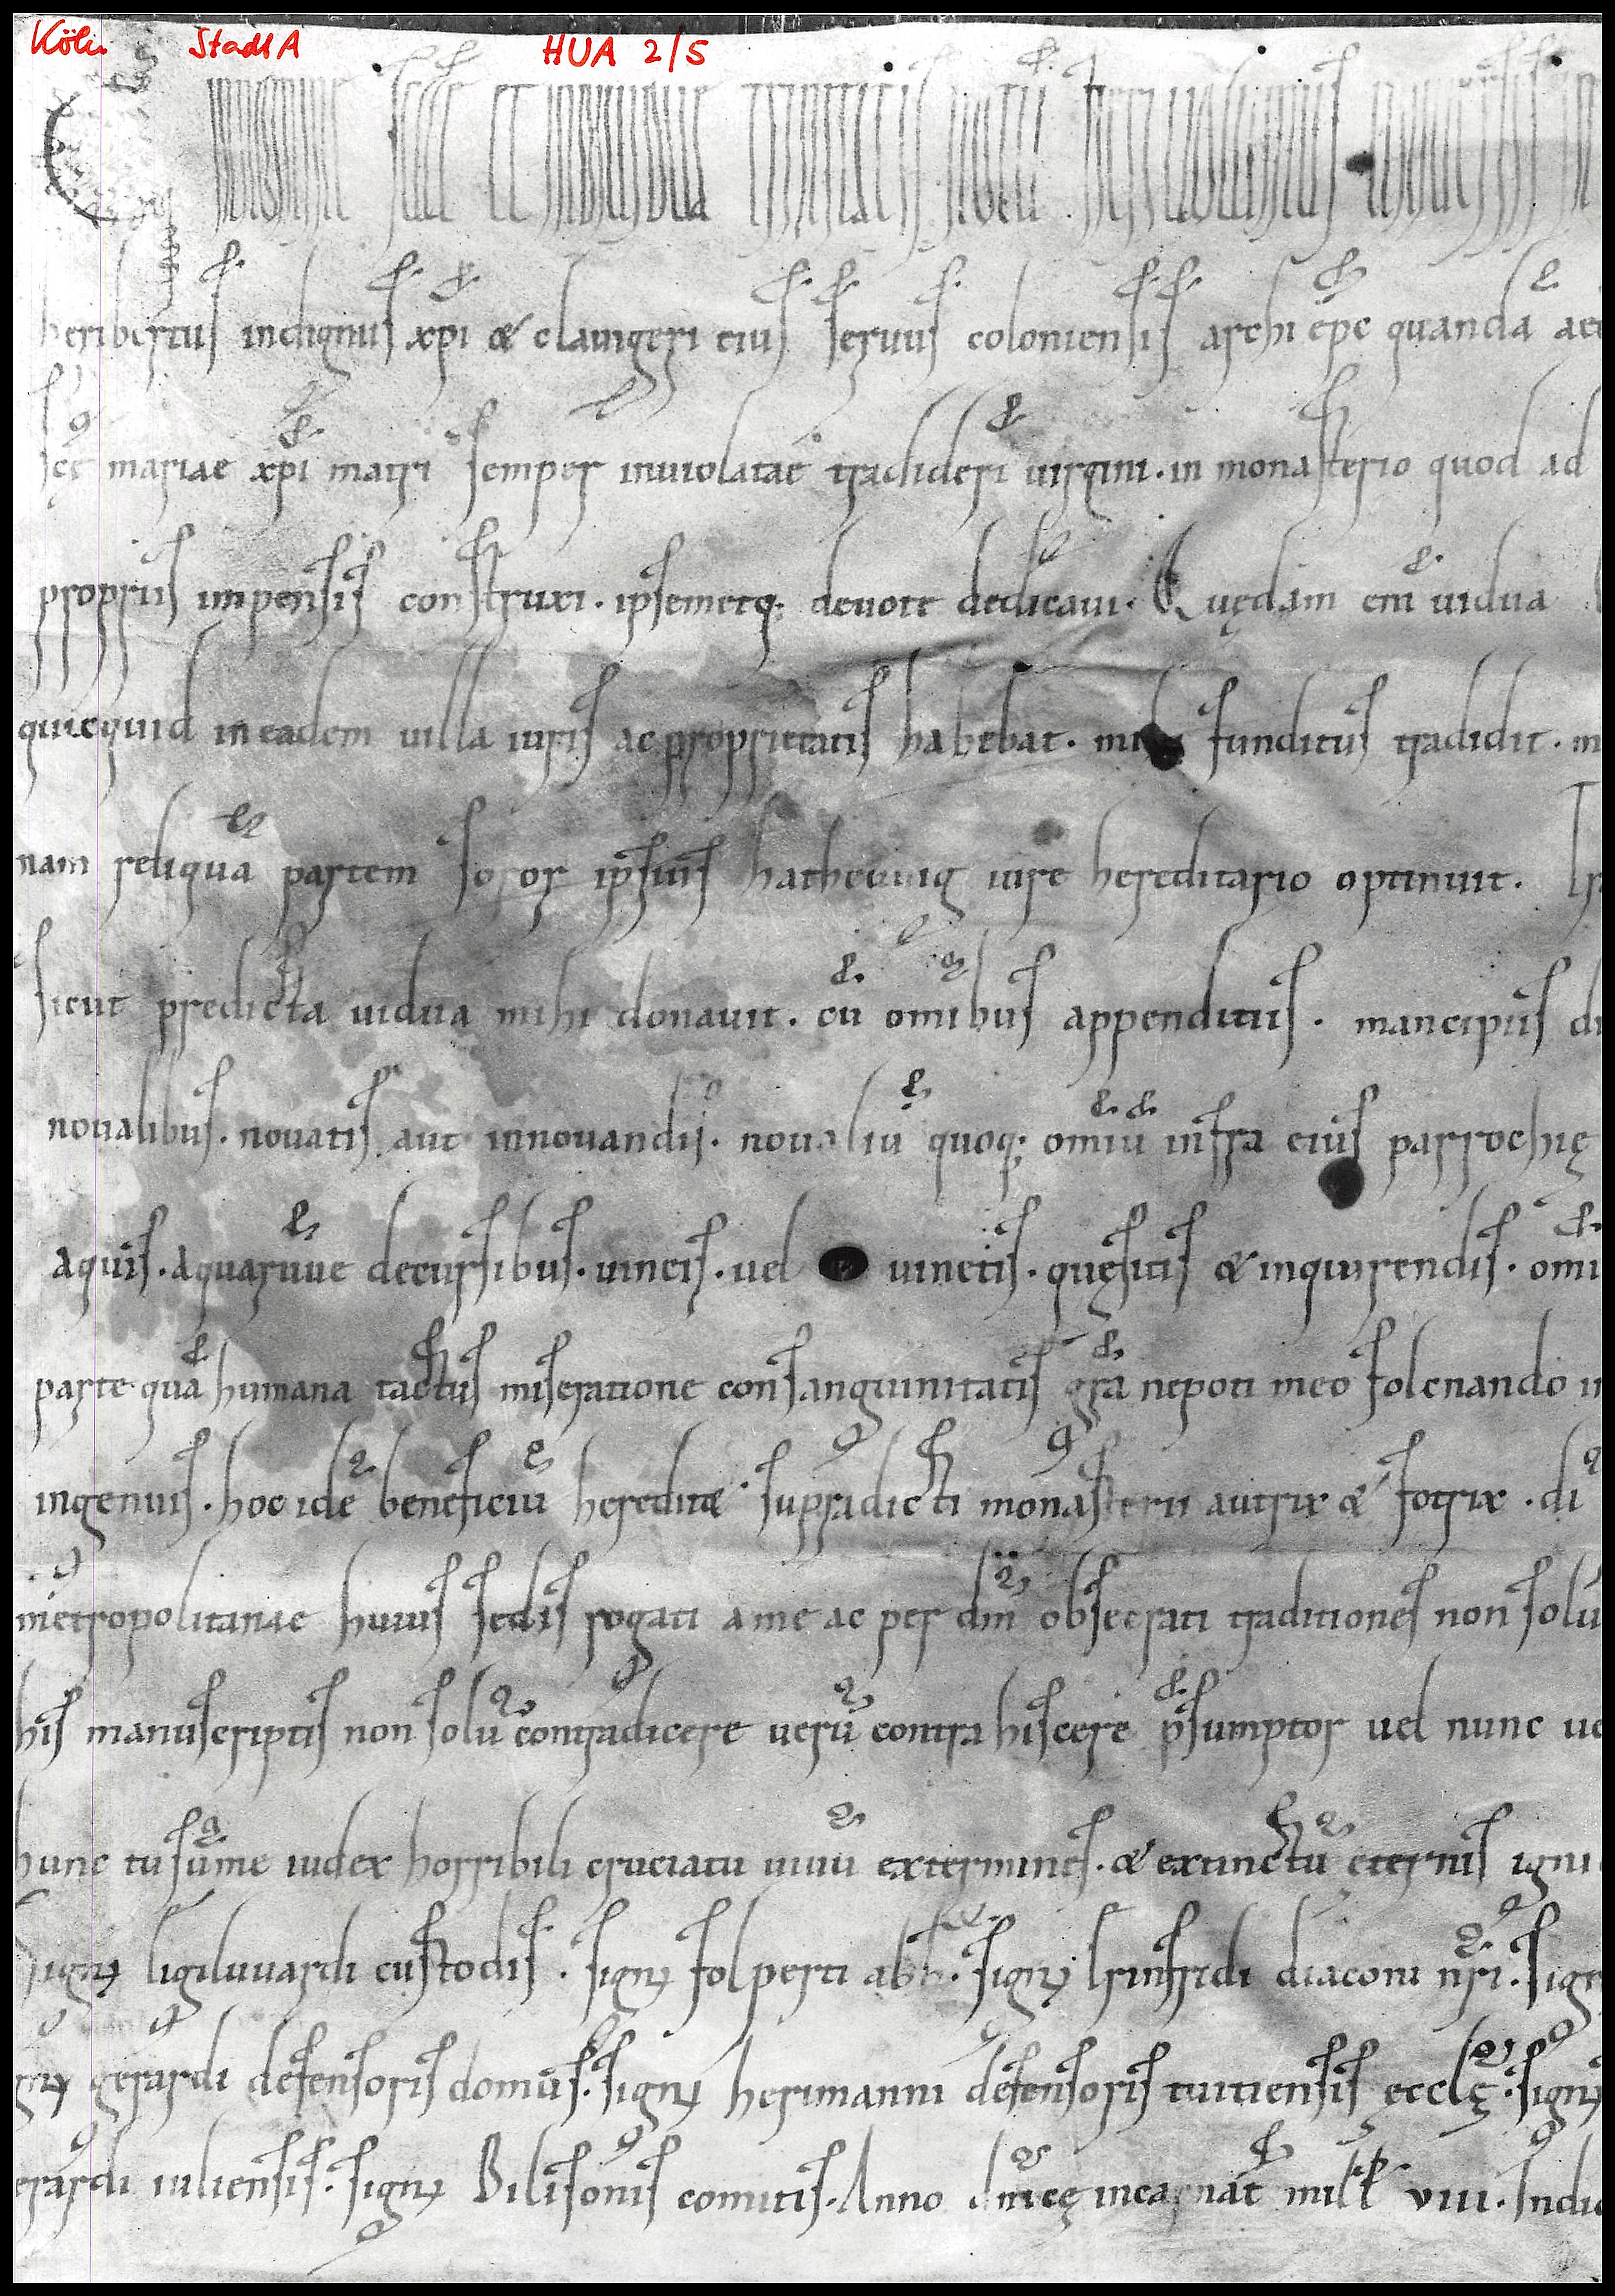 Köln StadtA HUA 2/5
IN NOMINE SCĘ ET INDIVIDUĘ TRINITATIS. NOTŪ
heribertus indignus xpi & clauigeri eius seruus coloniensis archi ep̄c quandā aec
scę mariae xp̄i matri semper inuiolatae tradideri uirgini. in monasterio quod ad
propriis impensis construxi. ipsemetq; deuote dedicaui. Quędam eni uidua
quicquid in eadem uilla iuris ac proprietatis habebat. mihi funditus tradidit. m
nam reliquā partem soror ipsius hatheuuig iure hereditario optinuit.
sicut predicta uidua mihi donauit. cū omibus appenditiis. mancipiis di
noualibus. nouatis aut innouandis. noualiū quoq; omiū infra eius parrochię
aquis. aquarūue decursibus. uineis. uel uinetis. quęsitis & inquirendis. omi
parte quā humana tactus miseratione consanguinitatis grā nepoti meo folcnando in
ingenuis. hoc idē beneficiū heredit& supradicti monasterii autrix & fotrix. di
metropolitanae huius sedis rogati a me ac per dm̄ obsecrati traditiones non solū
his manuscriptis non solū contradicere uerū contra hiscere p̄sumptor uel nunc ue
hunc tu sūme iudex horribili cruciatu uiuū extermines. & extinctū eternis igni
signū ligiluuardi custodis. signū folperti abb. signū Erinfridi diaconi nr̄i. sign
gnū gerardi defensoris domus. signū herimanni defensoris tuitiensis ęcclę. signū
erardi iuliensis. signū Bilisonis comitis. Anno dn̄icę incarnat̄ mill̄ VIII. Indic